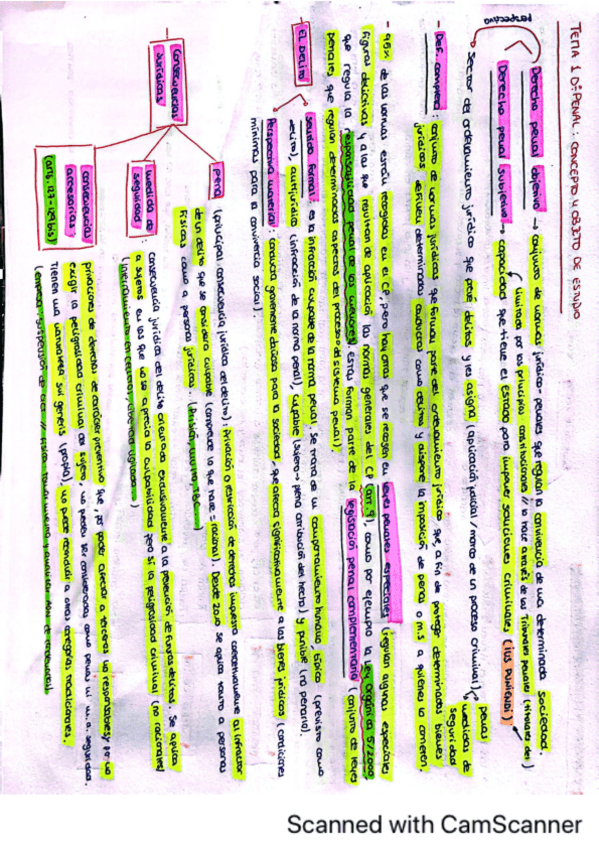 TEMA 1 D: PENAL: CONCEPTO Y OBJETO DE ESTUDIO
perspectiva
Derecho penal objetivo → conjunto de normas jurídico-penales que regulan la convivencia de una determinada sociedad.
limitado por los principios constitucionales // lo hace a través de los Tribunales penales
Derecho penal subjetivo → capacidad que tiene el Estado para imponer sanciones criminales (ius puniendi)
Sector del ordenamiento jurídico que prevé delitos y les asigna (aplicación judicial / marco de un proceso criminal)
penas
medidas de
seguridad
- Def. completa: conjunto de normas jurídicas que forman parte del ordenamiento jurídico que a fin de proteger determinados bienes
jurídicos, definen determinadas conductas como delitos y dispone la imposición de penas o m.s a quienes la cometen.
- 95% de las normas están recogidas en el CP, pero hay otras que se recogen en leyes penales especiales (regulan algunas especiales
figuras delictivas y a las que resultan de aplicación las normas generales del CP (art. 9), como por ejemplo la Ley orgánica 5/2000
que regula la responsabilidad penal de los menores) Estas forman parte de la legislación penal complementaria (conjunto de leyes
penales que regulan determinados aspectos del proceso o del sistema penal).
- EL DELITO
Sentido formal: es la infracción culpable de la norma penal. Se trata de un comportamiento humano, típico (previsto como
delito), antijurídico (infracción de la norma penal), culpable (sujeto → plena atribución del hecho) y punible (no penaria).
Perspectiva material: conducta gravemente dañosa para la sociedad - que afecta significativamente a los bienes jurídicos (condiciones
mínimas para la convivencia social).
Consecuencias
Jurídicas
pena (principal consecuencia jurídica del delito): Privación o restricción de derechos impuesta coactivamente al infractor
de un delito que se considera culpable (comprende lo que hace = racional). Desde 2010 se aplica tanto a personas
físicas como a personas jurídicas. (Prisión, multa, TBC)
medida de
seguridad: consecuencia jurídica del delito orientada exclusivamente a la prevención de futuros delitos. Se aplica
a sujetos en los que no se aprecia la culpabilidad pero sí la peligrosidad criminal (no racionales)
(Internamiento en centro, libertad vigilada)
consecuencias
accesorias:
(arts. 127-129 bis)
privaciones de derechos de carácter preventivo que, por poder afectar a terceros no responsables y por no
exigir la peligrosidad criminal del sujeto, no pueden ser consideradas como penas ni m.a. seguridad.
Tienen una naturaleza sui generis (propia), no puede reconducir a otras categorías tradicionales.